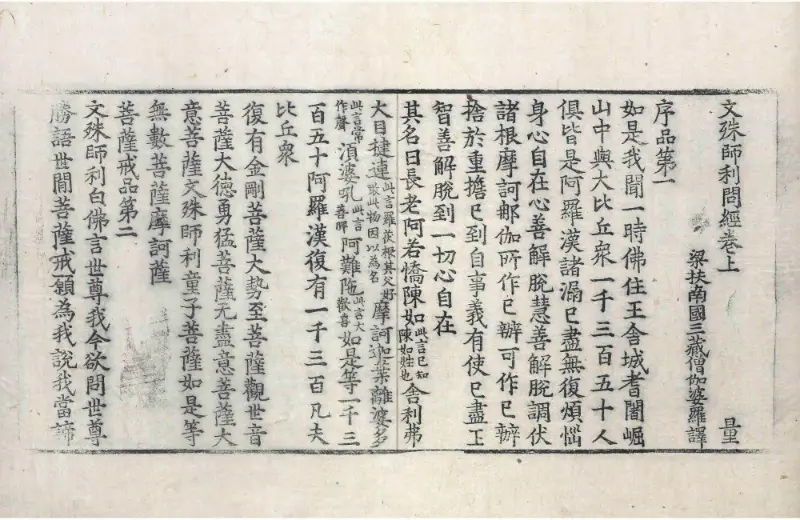 文殊師利問經卷上 量
梁扶南國三藏僧伽婆羅譯
序品第一
如是我聞一時佛住王舍城耆闍崛
山中與大比丘衆一千三百五十人
俱皆是阿羅漢諸漏已盡無復煩惱
身心自在心善解脫慧善解脫調伏
諸根摩訶那伽所作已辦可作已辦
捨於重擔已到自事義有使已盡正
智善解脫到一切心自在
其名曰長老阿若憍陳如此言已知陳如姓也舍利弗
大目揵連此言羅茯根其父好噉此物因以為名摩訶迦葉離婆多
此言常作聲須婆吼此言善阿難陁此言大歡喜如是等一千三
百五十阿羅漢復有一千三百凡夫
比丘衆
復有金剛菩薩大勢至菩薩觀世音
菩薩大德勇猛菩薩无盡意菩薩大
意菩薩文殊師利童子菩薩如是等
無數菩薩摩訶薩
菩薩戒品第二
文殊師利白佛言世尊我今欲問世尊
勝語世間菩薩戒願為我說我當諦